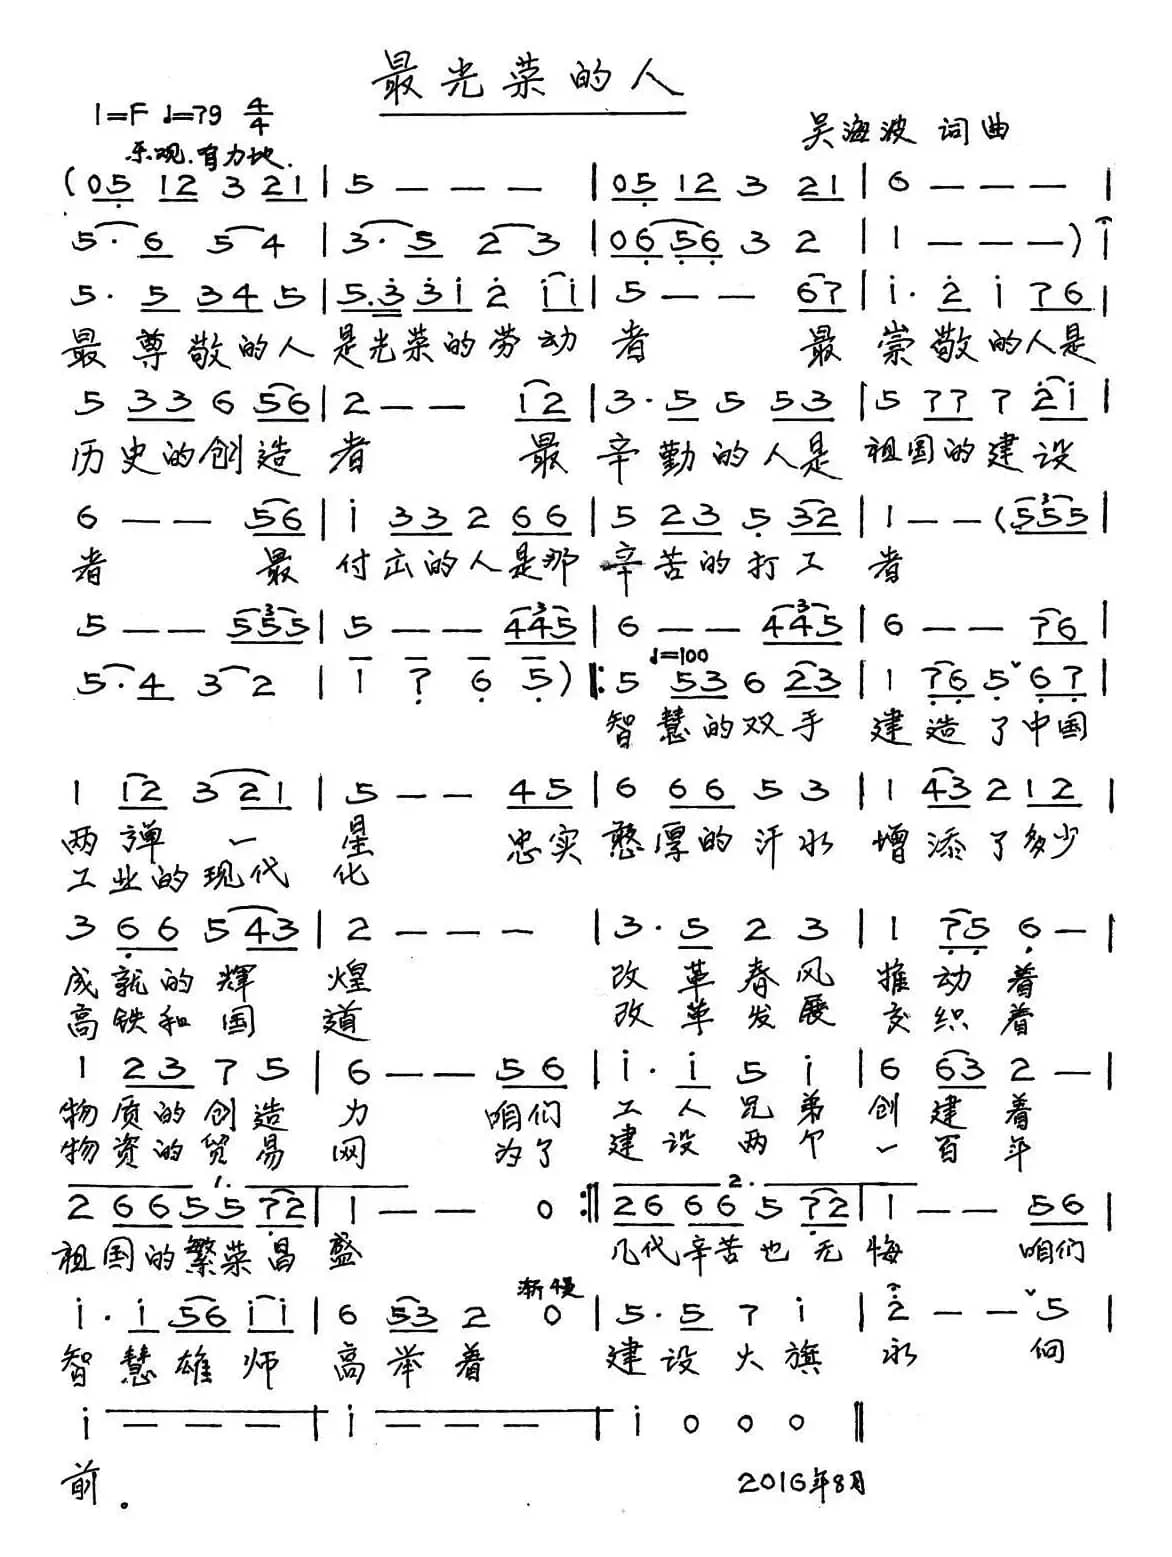 最光荣的人
1=F ♩=79 4/4
吴海波 词曲
乐观.有力地.
(05 12 3 21 | 5 — — — | 05 12 3 21 | 6 — — — |
5· 6 5 4 | 3· 5 2 3 | 06 56 3 2 | 1 — — —) |
5· 5 34 5 | 5.3 31 2 11 | 5 — — 67 | 1· 2 1 76 |
最尊敬的人是光荣的劳动者 最崇敬的人是
5 33 6 56 | 2 — — 12 | 3· 5 5 53 | 5 77 7 21 |
历史的创造者 最辛勤的人是祖国的建设
6 — — 56 | 1 33 2 66 | 5 23 5 32 | 1 — — (555 |
者 最付出的人是那辛苦的打工者
5 — — 555 | 5 — — 445 | 6 — — 445 | 6 — — 76 |
♩=100
5· 4 3 2 | 1 7 6 5) |: 5 53 6 23 | 1 76 5 67 |
智慧的双手 建造了中国
1 12 3 21 | 5 — — 45 | 6 66 5 3 | 1 43 2 12 |
两弹一星 忠实憨厚的汗水 增添了多少
工业的现代化
3 66 5 43 | 2 — — — | 3· 5 2 3 | 1 75 6 — |
成就的辉煌 改革春风 推动着
高铁和国道 改革发展 交织着
1 23 7 5 | 6 — — 56 | 1· 1 5 1 | 6 63 2 — |
物质的创造力 咱们工人兄弟 创建着
物资的贸易网 为了建设两个一百年
1. 2.
2 66 55 72 | 1 — — 0 :|| 26 66 5 72 | 1 — — 56 |
祖国的繁荣昌盛 几代辛苦也无悔 咱们
渐慢
1· 1 56 11 | 6 53 2 0 | 5· 5 7 1 | 2 — — 5 |
智慧雄师 高举着 建设火旗 永向
1 — — — | 1 — — — | 1 0 0 0 ||
前。
2016年8月